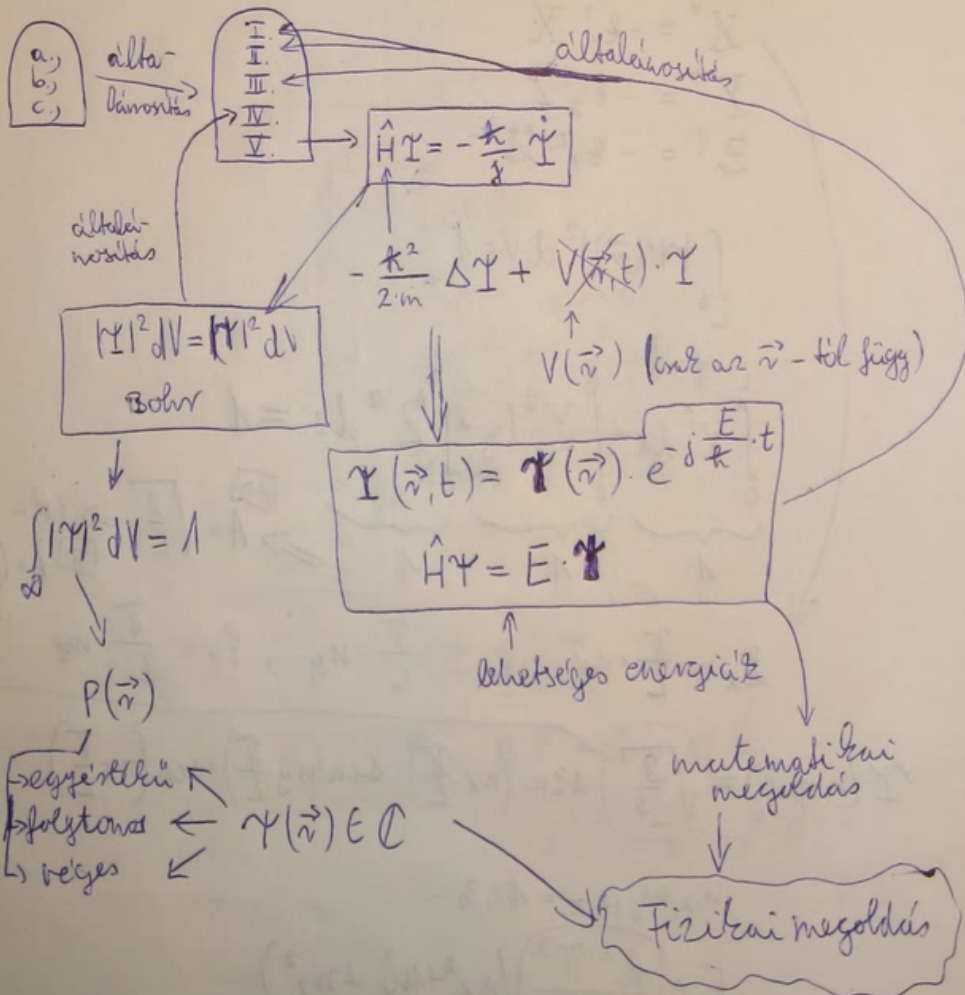 a.,
b.,
c.,
álta-
lánosítás
I.
II.
III.
IV.
V.
általánosítás
ĤΨ = - ℏ/j Ψ̇
általá-
nosítás
- ℏ²/2·m ΔΨ + V(r⃗,t)·Ψ
V(r⃗) (csak az r⃗-től függ)
|Ψ|² dV = |ψ|² dV
Bohr
Ψ(r⃗,t) = ψ(r⃗)·e^(-j E/ℏ·t)
Ĥψ = E·ψ
∫∞ |ψ|² dV = 1
lehetséges energiák
P(r⃗)
egyértékű
folytonos
véges
ψ(r⃗) ∈ ℂ
matematikai
megoldás
Fizikai megoldás